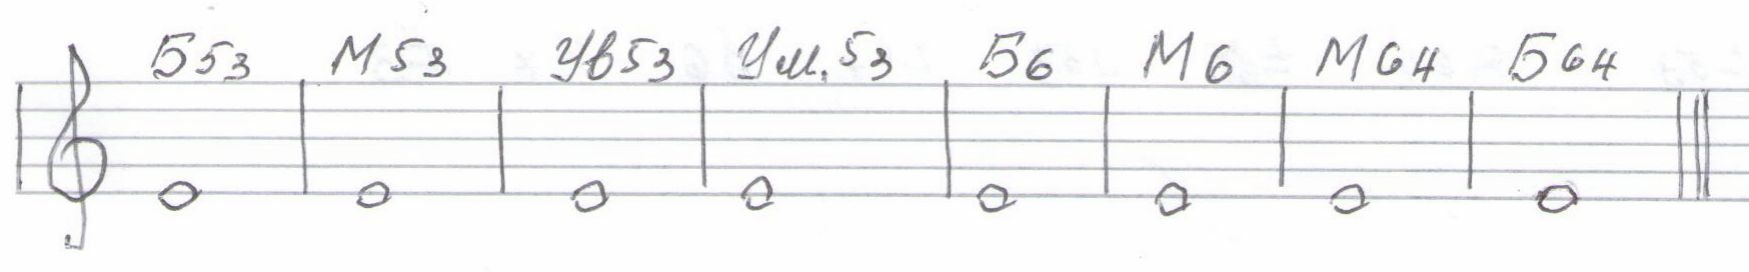 Б53 М53 Ув53 Ум.53 Б6 М6 М64 Б64